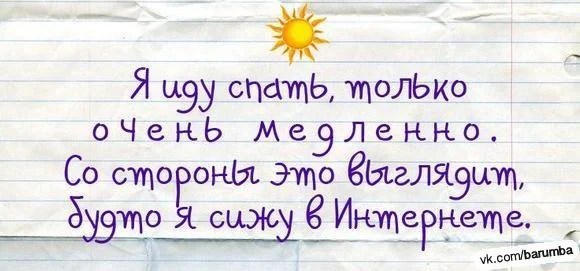 Я иду спать, только
очень медленно.
Со стороны это выглядит,
будто я сижу в Интернете.
vk.com/barumba